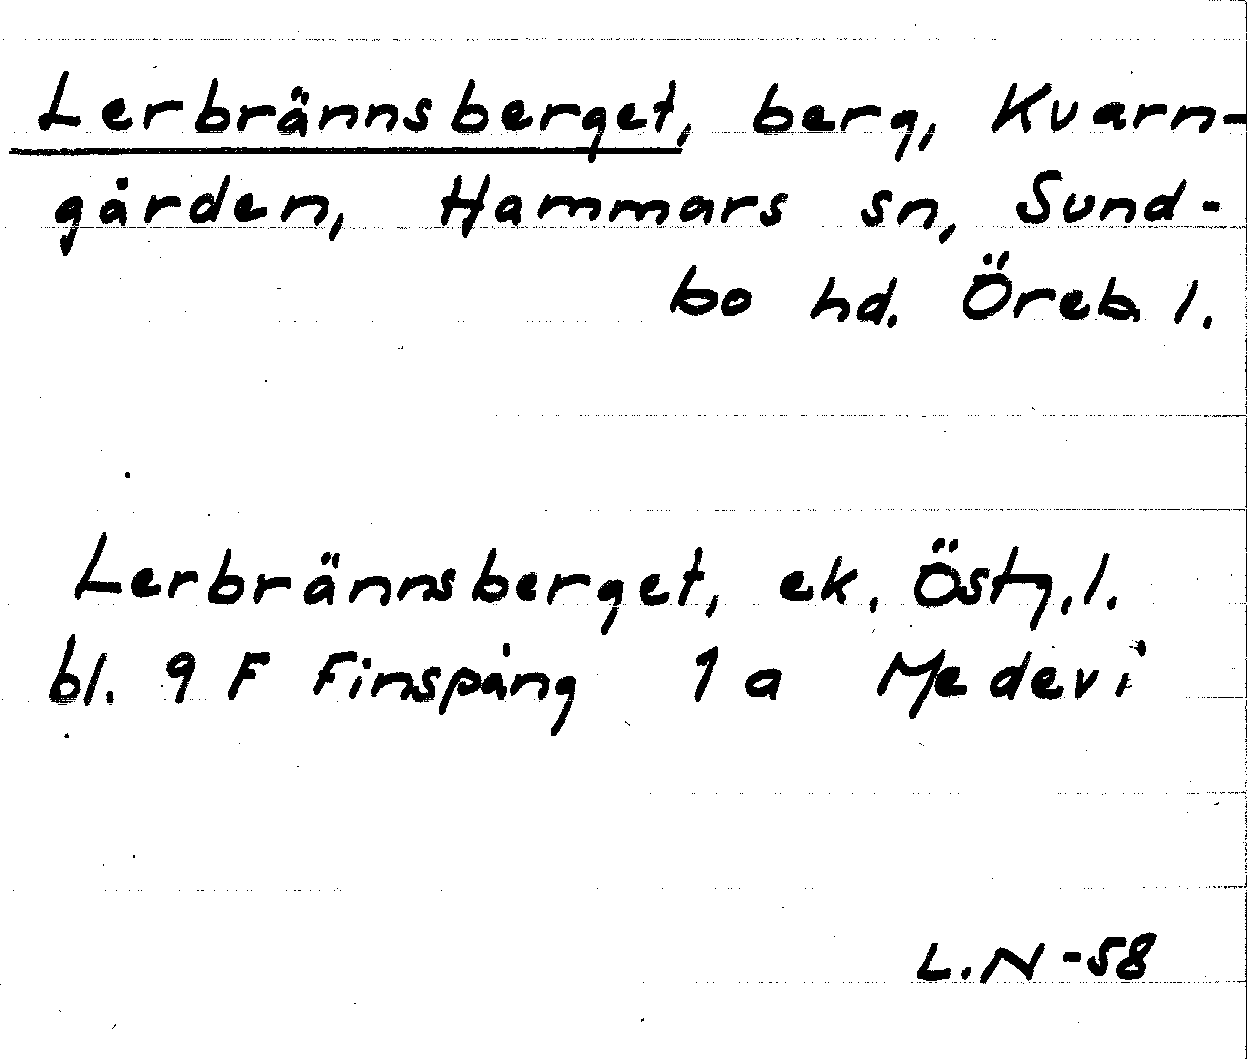 Lerbrännsberget, berg, Kvarn-
gården, Hammars sn, Sund-
bo hd. Öreb l.
Lerbrännsberget, ek. Östg.l.
bl. 9 F Finspång 1 a Medevi
L.N -58